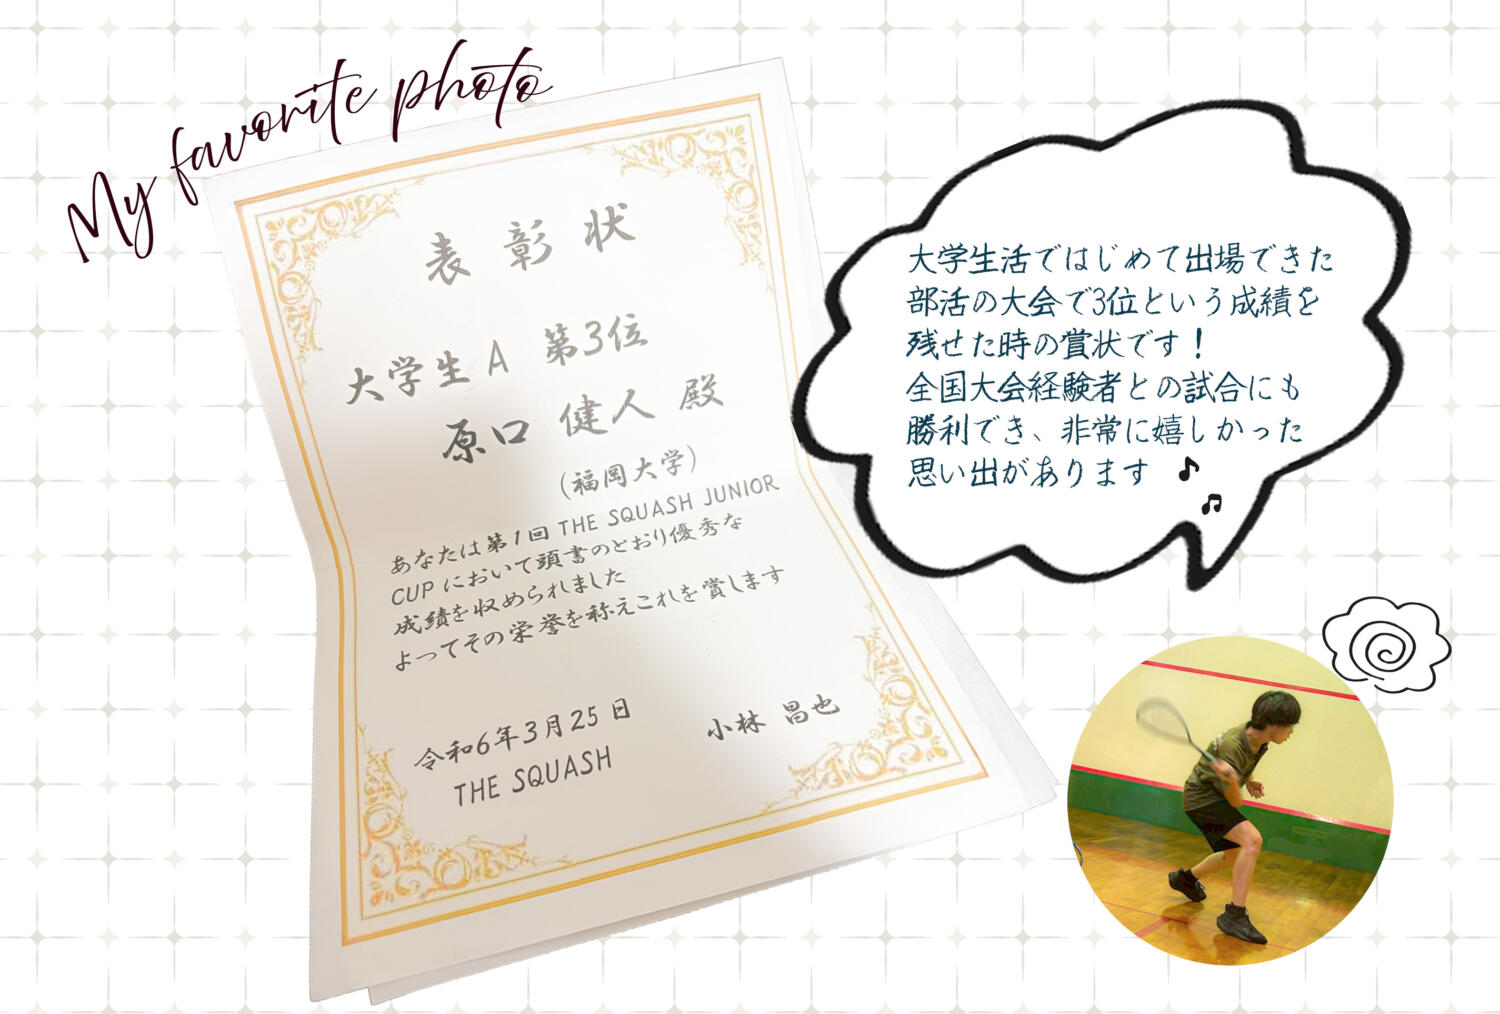 My favorite photo
表彰状
大学生A 第3位
原口 健人 殿
(福岡大学)
あなたは第1回 THE SQUASH JUNIOR
CUP において頭書のとおり優秀な
成績を収められました
よってその栄誉を称えこれを賞します
令和6年3月25日
THE SQUASH
小林 昌也
大学生活ではじめて出場できた
部活の大会で3位という成績を
残せた時の賞状です！
全国大会経験者との試合にも
勝利でき、非常に嬉しかった
思い出があります